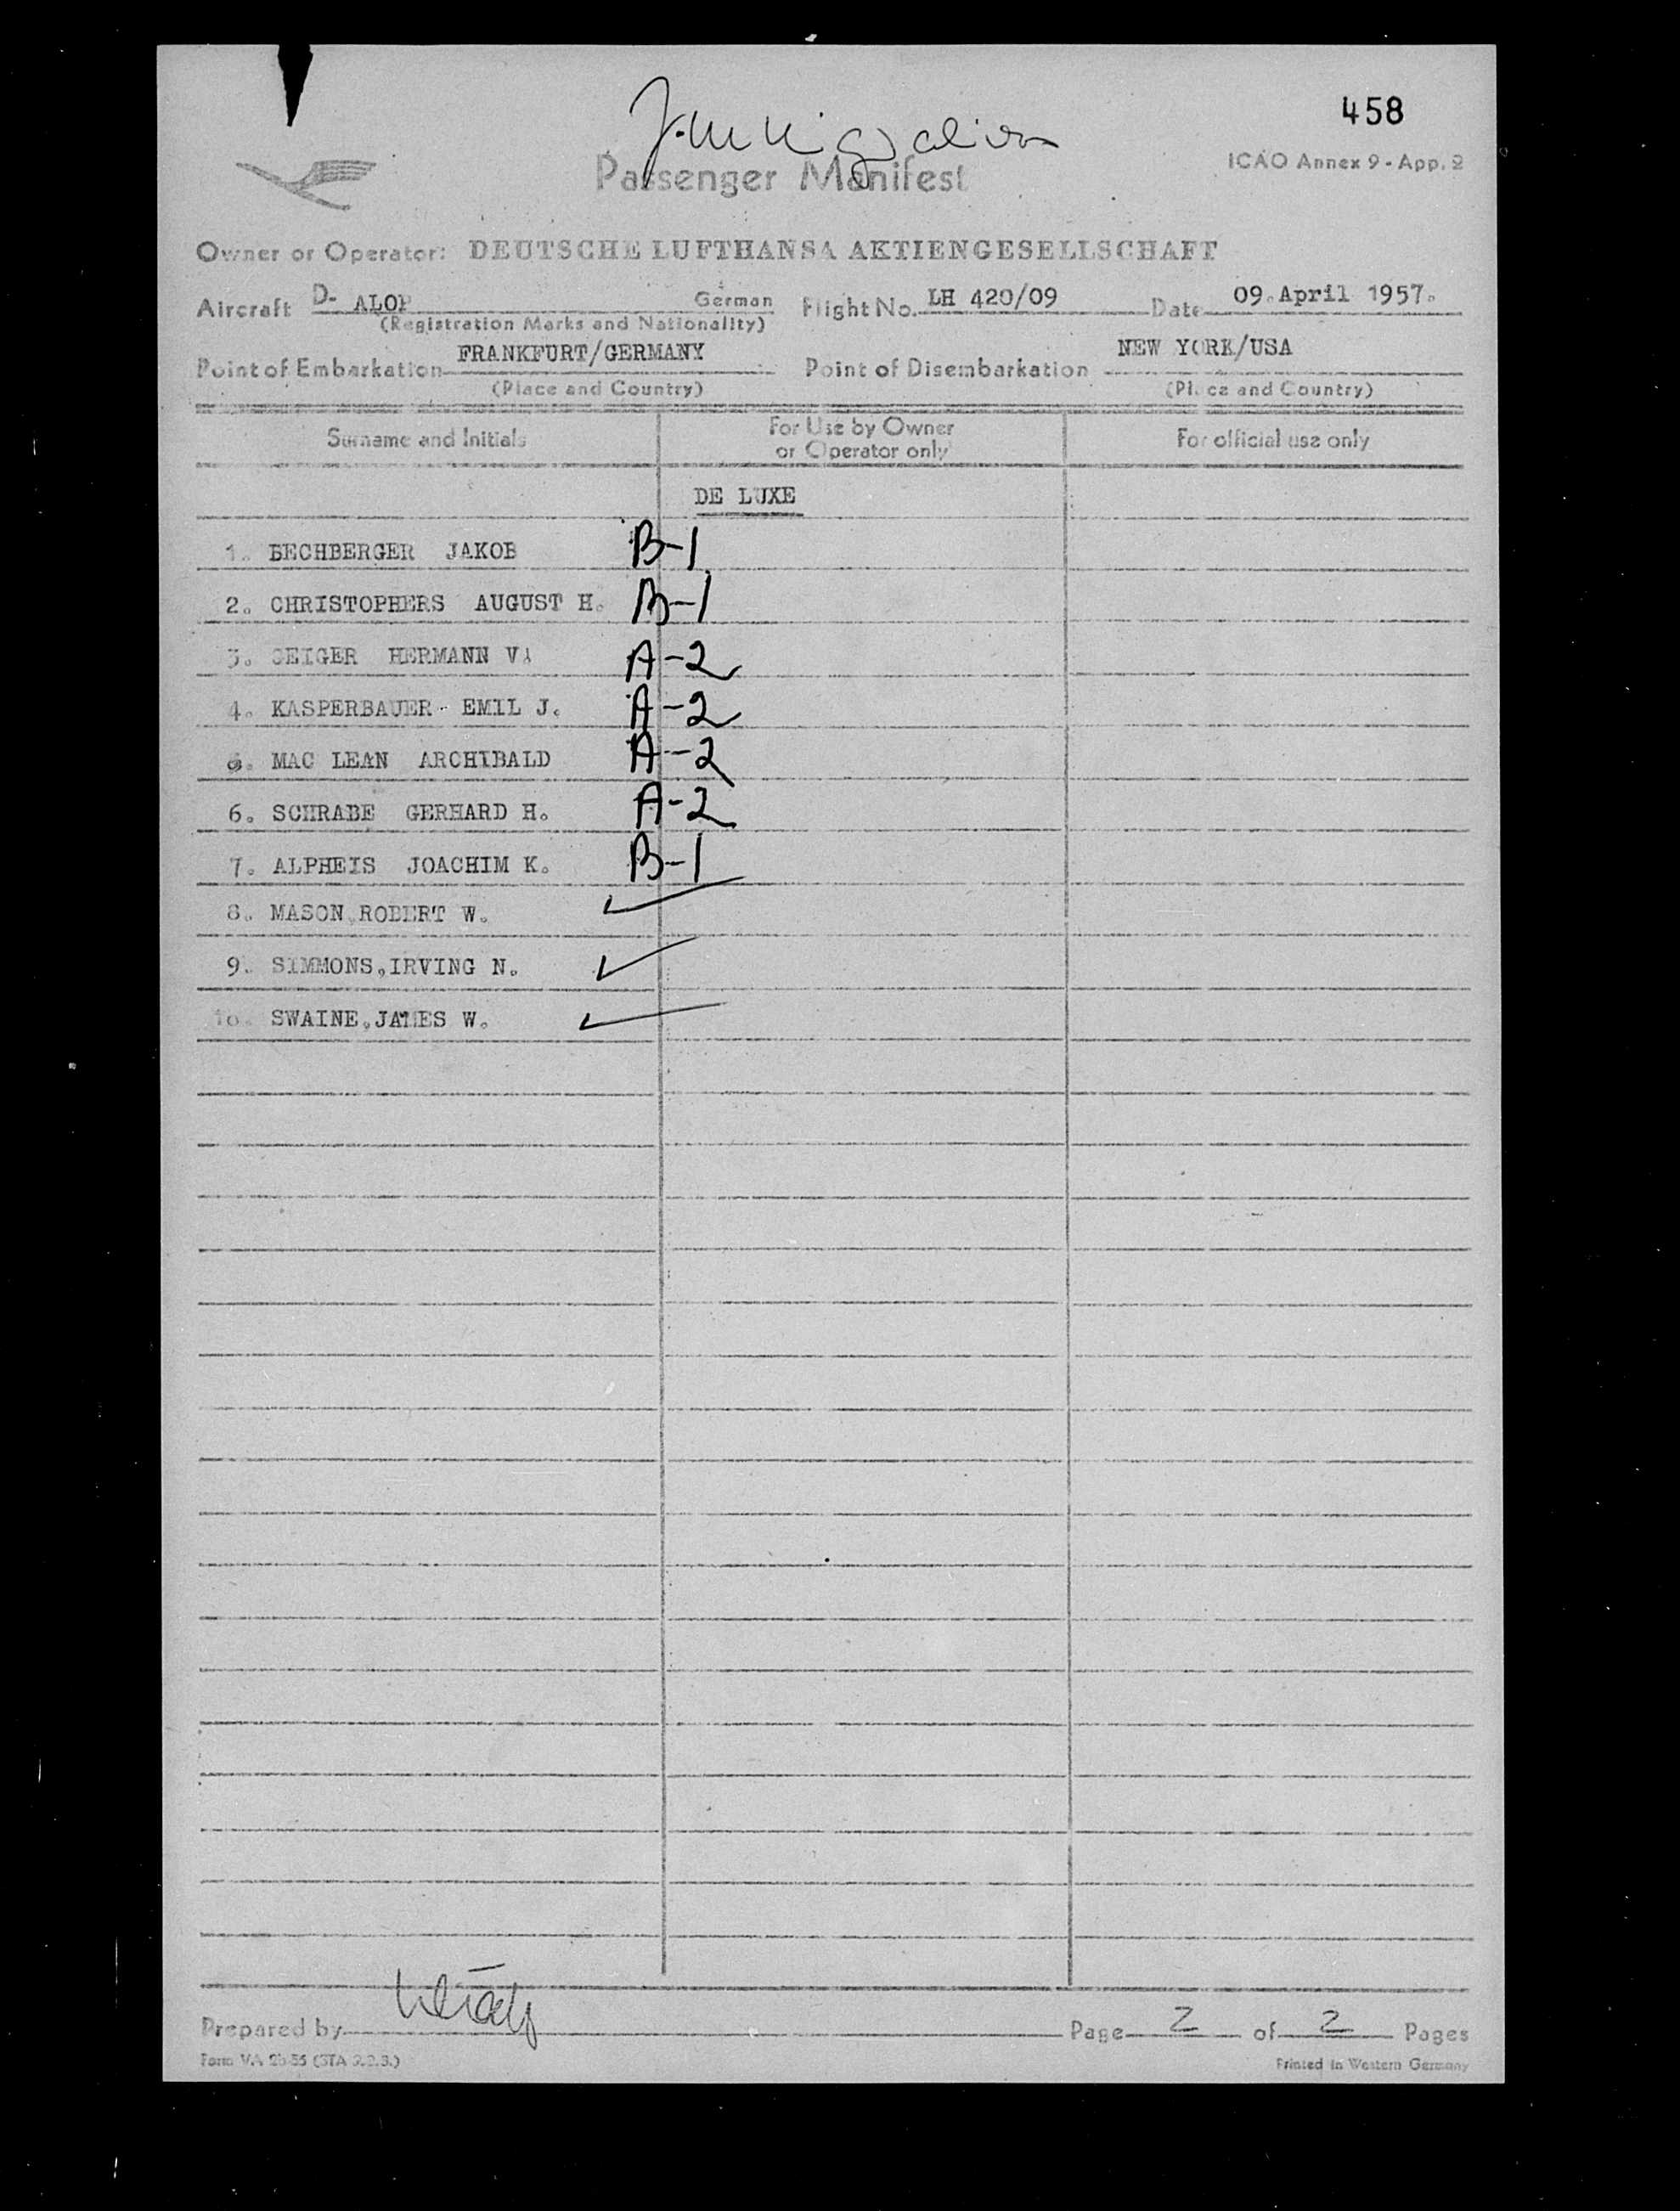 458
Immigration
Passenger Manifest
ICAO Annex 9 - App. 2
Owner or Operator: DEUTSCHE LUFTHANSA AKTIENGESELLSCHAFT
Aircraft D- ALOP German Flight No. LH 420/09 Date 09.April 1957.
(Registration Marks and Nationality)
Point of Embarkation FRANKFURT/GERMANY Point of Disembarkation NEW YORK/USA
(Place and Country) (Place and Country)
Surname and Initials For Use by Owner or Operator only For official use only
DE LUXE
1. BECHBERGER JAKOB B-1
2. CHRISTOPHERS AUGUST H. B-1
3. GEIGER HERMANN A-2
4. KASPERBAUER EMIL J. A-2
5. MAC LEAN ARCHIBALD A-2
6. SCHRABE GERHARD H. A-2
7. ALPHEIS JOACHIM K. B-1
8. MASON,ROBERT W.
9. SIMMONS,IRVING N.
10. SWAINE,JAMES W.
Prepared by Page 2 of 2 Pages
Form VA 2b-55 (STA 2.2.3.) Printed in Western Germany